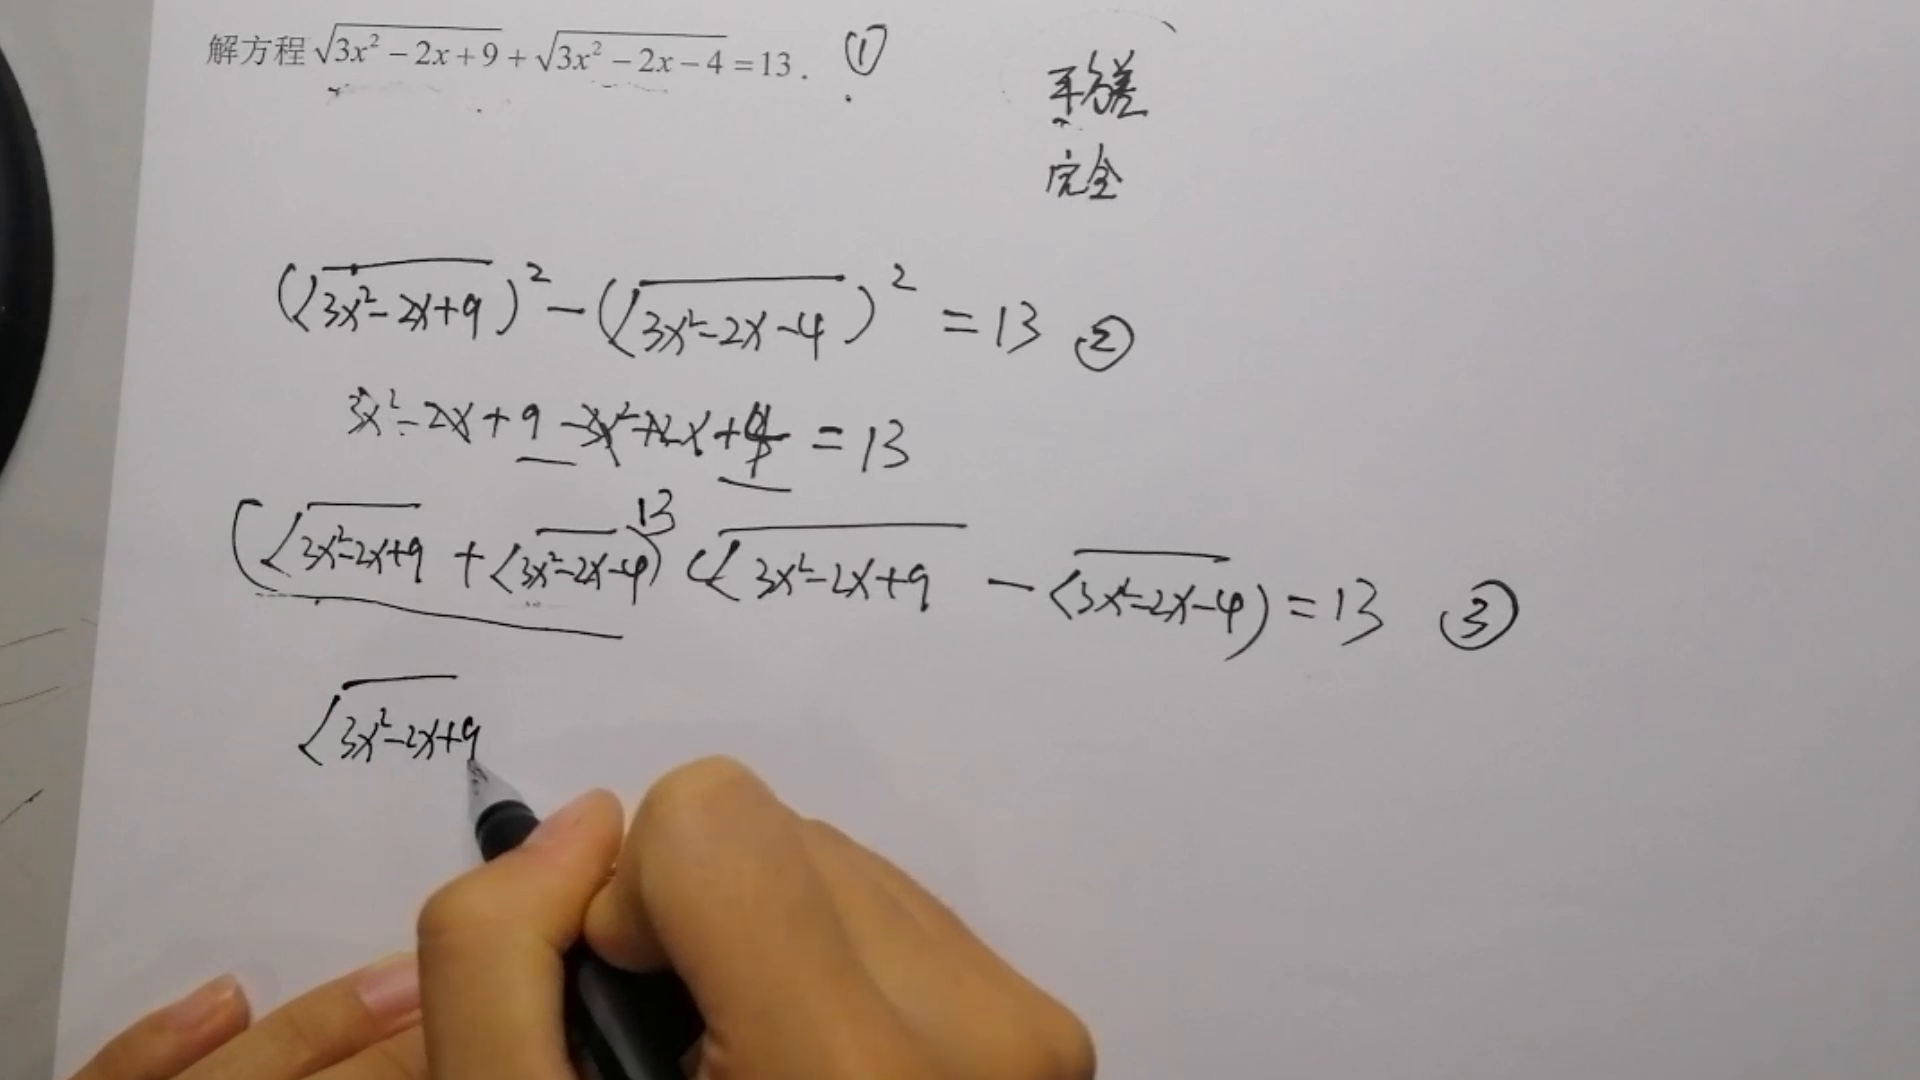 解方程√(3x²−2x+9)+√(3x²−2x−4)=13. ①
平方差
完全
(√(3x²−2x+9))²−(√(3x²−2x−4))²=13 ②
3x²−2x+9−3x²+2x+4=13
13
(√(3x²−2x+9)+√(3x²−2x−4))(√(3x²−2x+9)−√(3x²−2x−4))=13 ③
√(3x²−2x+9)